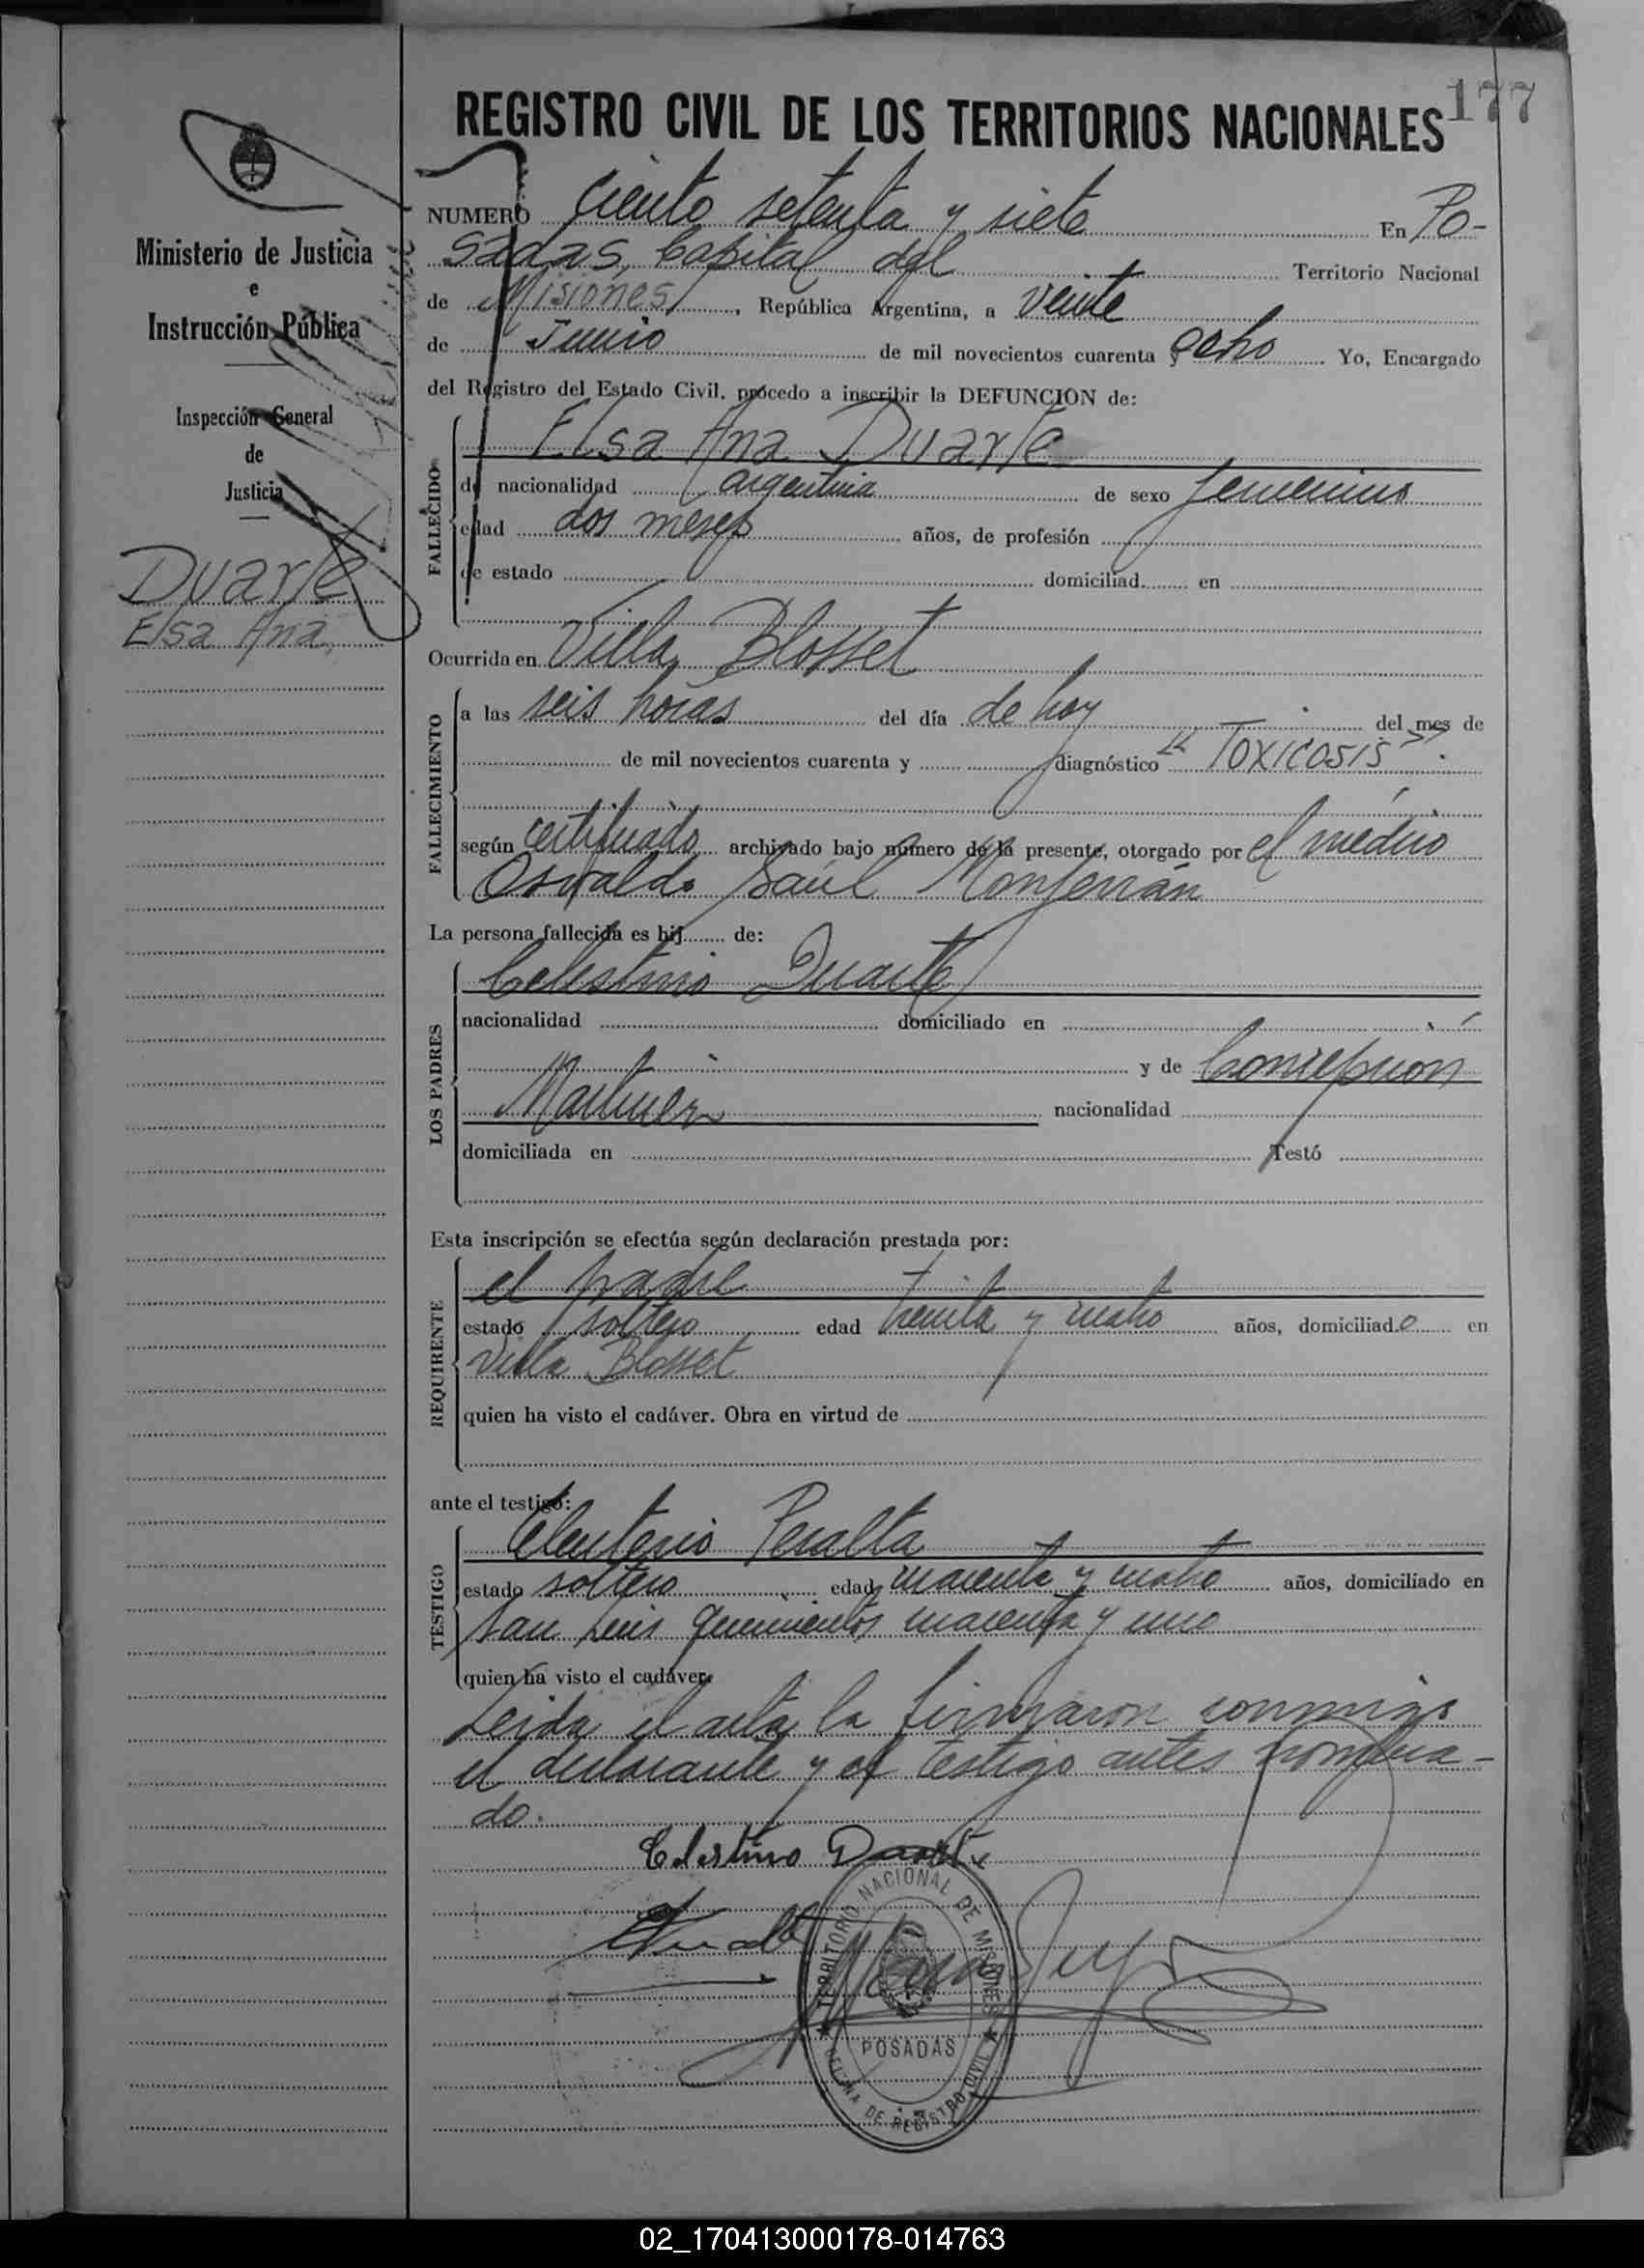 177
REGISTRO CIVIL DE LOS TERRITORIOS NACIONALES
Ministerio de Justicia
e
Instrucción Pública
Inspección General
de
Justicia
Duarte
Elsa Ana
NUMERO ciento setenta y siete En Po-
sadas, Capital del Territorio Nacional
de Misiones, República Argentina, a veinte
de Junio de mil novecientos cuarenta y ocho Yo, Encargado
del Registro del Estado Civil, procedo a inscribir la DEFUNCION de:
FALLECIDO
Elsa Ana Duarte
de nacionalidad argentina de sexo femenino
edad dos meses años, de profesión
de estado domiciliad en
Ocurrida en Villa Blosset
FALLECIMIENTO
a las seis horas del día de hoy del mes de
de mil novecientos cuarenta y diagnóstico "Toxicosis".
según certificado archivado bajo número de la presente, otorgado por el médico
Osvaldo Saúl Monferrán
La persona fallecida es hij de:
LOS PADRES
Celestino Duarte
nacionalidad domiciliado en
y de Concepción
Martinez nacionalidad
domiciliada en Testó
Esta inscripción se efectúa según declaración prestada por:
REQUIRENTE
el padre
estado soltero edad treinta y cuatro años, domiciliado en
Villa Blosset
quien ha visto el cadáver. Obra en virtud de
ante el testigo:
TESTIGO
Eleuterio Peralta
estado soltero edad cuarenta y cuatro años, domiciliado en
San Luis quinientos cuarenta y uno
quien ha visto el cadáver.
Leida el acta la firmaron conmigo
el declarante y el testigo antes nombra-
do.
Celestino Duarte
TERRITORIO NACIONAL DE MISIONES
POSADAS
OFICINA DE REGISTRO CIVIL
02_170413000178-014763